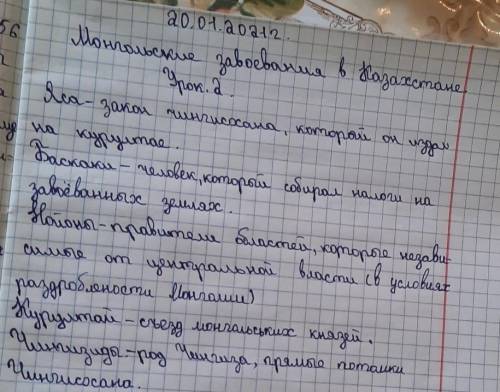 20.01.2021г.
56
Монгольские завоевания в Казахстане
Урок. 2.
Яса - закон чингисосана, который он издал
на курултае.
Баскаки - человек, который собирал налоги на
завоёванных землях.
Нойоны - правители областей, которые незави-
симые от центральной власти (в условиях
раздроблености Монголии)
Курултай - съезд монгольських князей.
Чингизиды - род Чингиза, прямые потомки
Чингисосана.